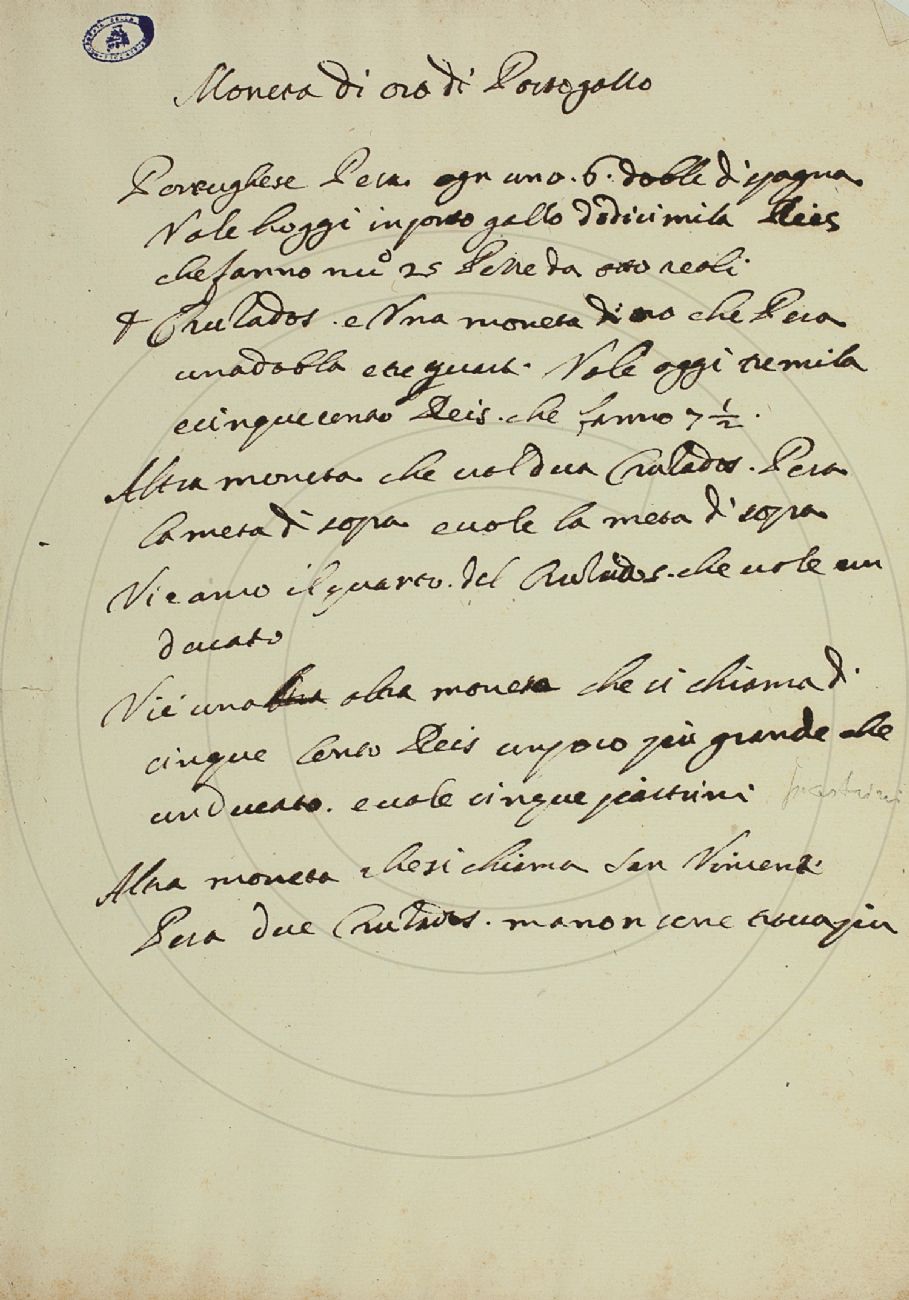 Moneta di oro di Portogallo
Portughese Pesa ogn uno. 6. doble di spagna
Vale hoggi in porto gallo dodici mila Reis
che fanno nu.o 25 Pezze da otto reali
4 Crusados. e Vna moneta di oro che Pesa
una dobla e tre quart. Vale oggi tre mila
e cinque cento Reis. che fanno 7 1/2.
Altra moneta che ual dua Crusados. Pesa
la meta di sopra e uale la meta di sopra
Vi e anco il quarto. del Crusados. che uale un
ducato
Vi é una altra moneta che si chiama di
cinque Cento Reis un poco piu grande che
un Ducato. e uale cinque piastrini piastrini
Altra moneta che si chiama San Vincent
Pesa due Crusados. ma non se ne troua piu